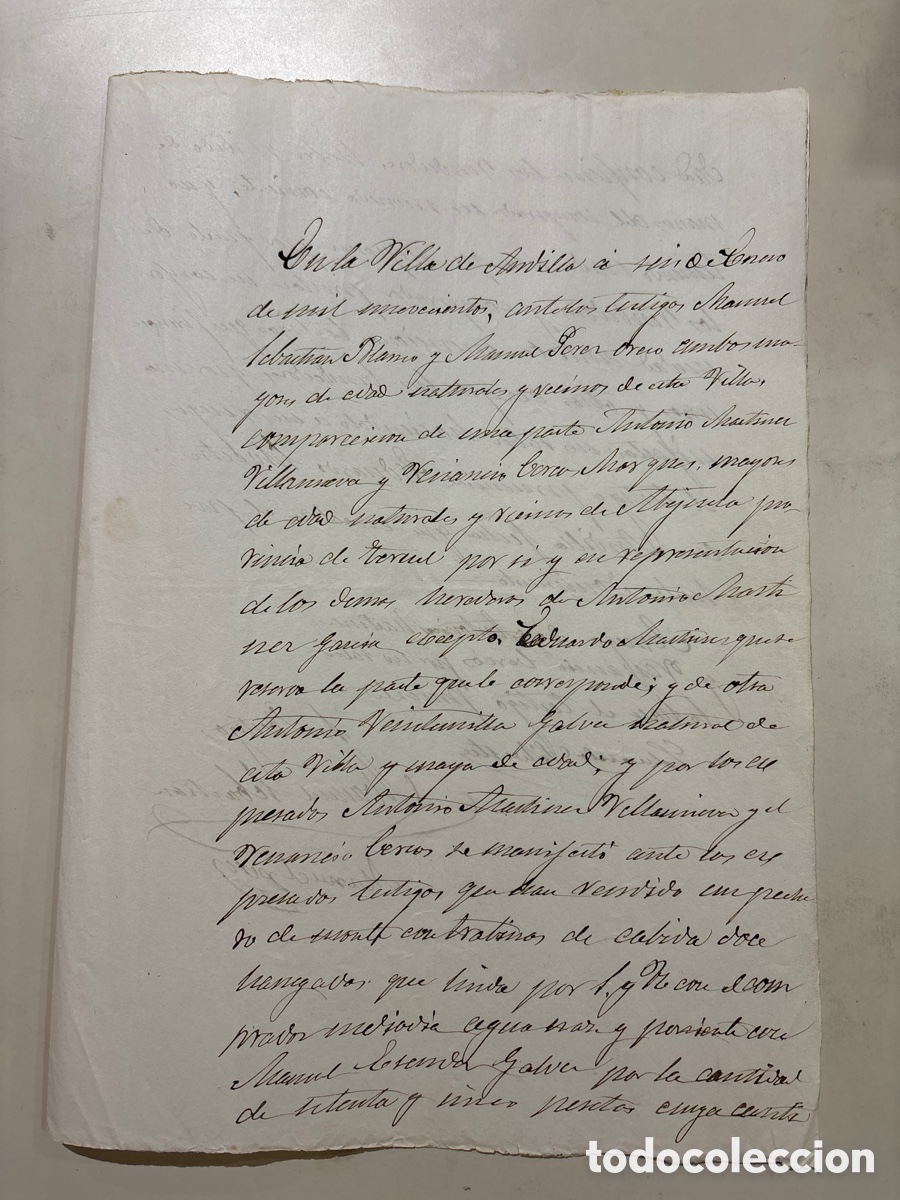 En la Villa de Andilla á seis de Enero
de mil novecientos, ante los testigos Manuel
Sebastian Blasco y Manuel Perez ambos ma-
yores de edad naturales y vecinos de esta Villa,
comparecieron de una parte Antonio Martinez
Villanueva y Venancio Cercos Marques, mayores
de edad naturales y vecinos de Abejuela pro-
vincia de Teruel por si y en representacion
de los demas herederos de Antonio Marti
nez Garcia eccepto, Eduardo Martinez que se
reserva la parte que le corresponde; y de otra
Antonio Veintimilla Galvez natural de
esta Villa y mayor de edad; y por los es
presados Antonio Martinez Villanueva y el
Venancio Cercos se manifestó ante los es
presados testigos que han vendido un pedaz
zo de monte con de cabida doce
hanegadas que linda por S. y N con el com
prador mediodia y poniente con
Manuel Galvez por la cantidad
de setenta y cinco pesetas cuya canti
todocoleccion